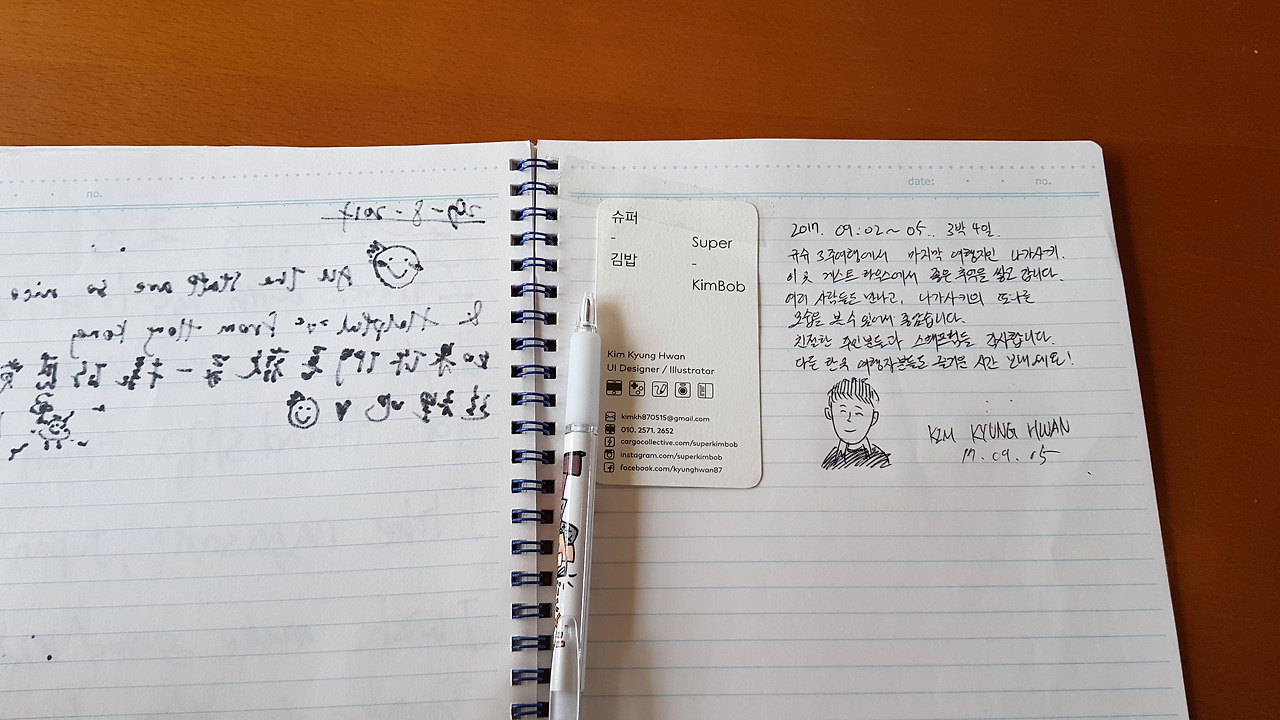 no.
29-8-2017
All The Staff are so nice
& Helpful
From Hong Kong
date:
no.
슈퍼
-
김밥
Super
-
KimBob
Kim Kyung Hwan
UI Designer / Illustrator
kimkh870515@gmail.com
010. 2571. 2652
cargocollective.com/superkimbob
instagram.com/superkimbob
facebook.com/kyunghwan87
2017. 09. 02 ~ 05. 3박 4일.
규슈 3주여행에서 마지막 여행지인 나가사키.
이 곳 게스트 하우스에서 좋은 추억을 쌓고 갑니다.
여러 사람들도 만나고, 나가사키의 또다른
모습을 볼 수 있어서 좋았습니다.
친절한 주인분들과 스태프분들 감사합니다.
다른 한국 여행자분들도 즐거운 시간 보내세요!
KIM KYUNG HWAN
17. 09. 05